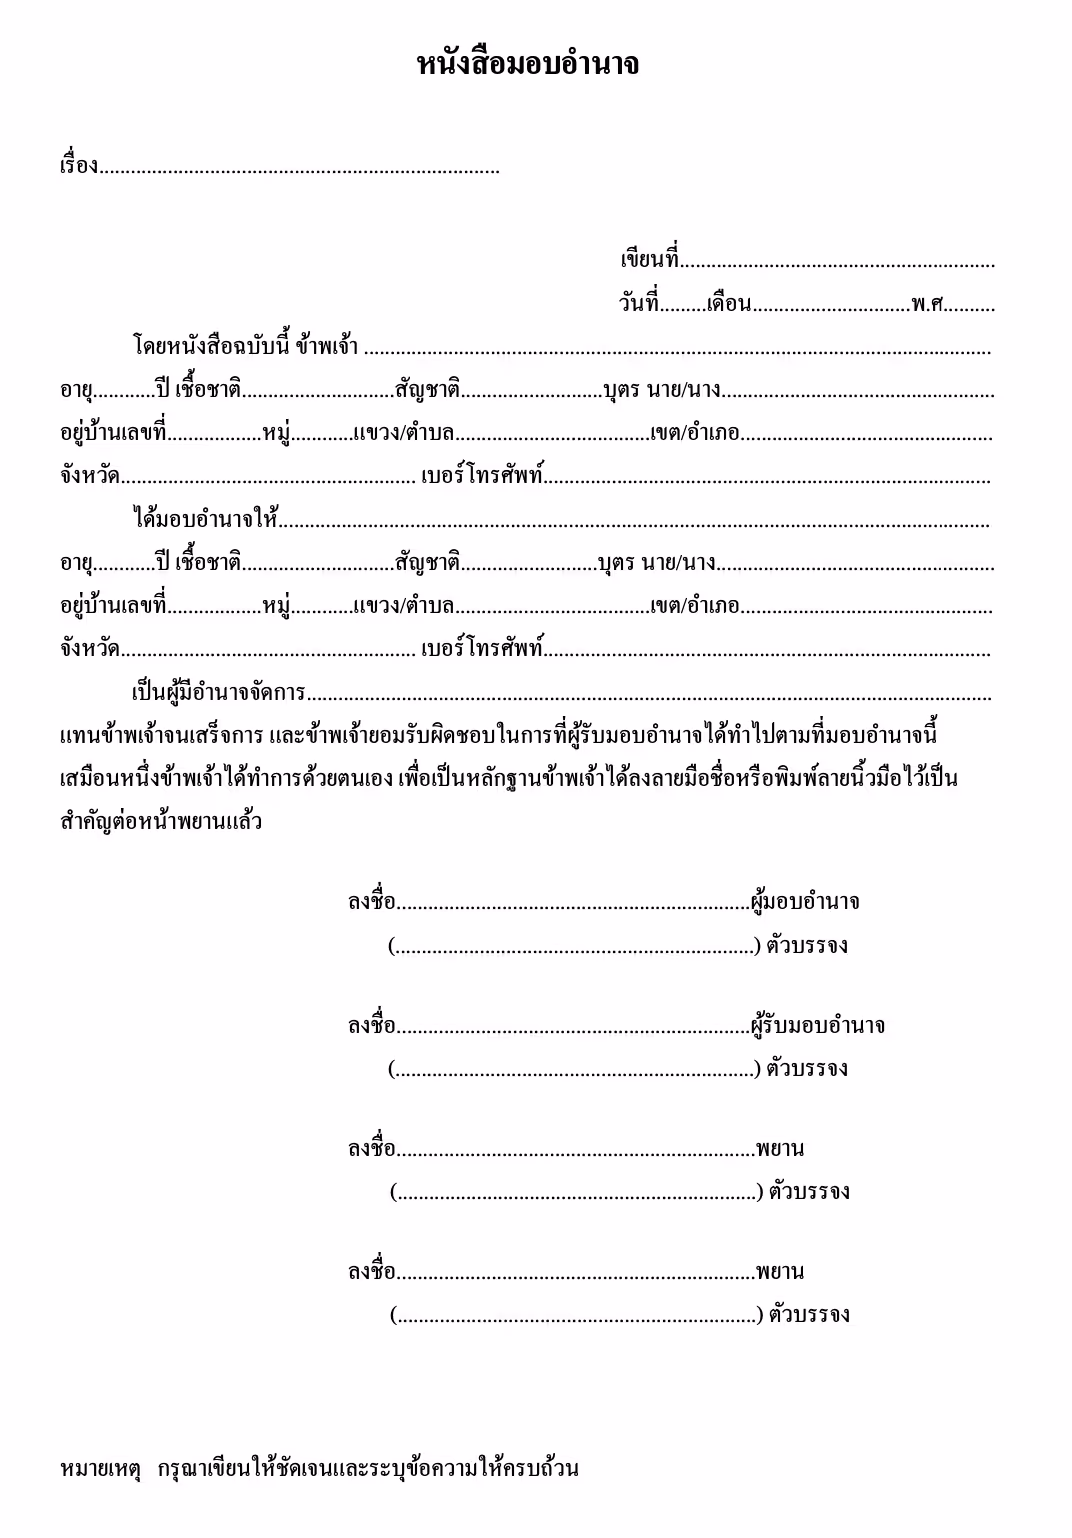 หนังสือมอบอำนาจ
เรื่อง............................................................................
เขียนที่............................................................
วันที่.........เดือน..............................พ.ศ..........
โดยหนังสือฉบับนี้ ข้าพเจ้า .......................................................................................................................
อายุ............ปี เชื้อชาติ.............................สัญชาติ...........................บุตร นาย/นาง....................................................
อยู่บ้านเลขที่..................หมู่............แขวง/ตำบล.....................................เขต/อำเภอ................................................
จังหวัด........................................................ เบอร์โทรศัพท์.....................................................................................
ได้มอบอำนาจให้.......................................................................................................................................
อายุ............ปี เชื้อชาติ.............................สัญชาติ..........................บุตร นาย/นาง.....................................................
อยู่บ้านเลขที่..................หมู่............แขวง/ตำบล.....................................เขต/อำเภอ................................................
จังหวัด........................................................ เบอร์โทรศัพท์.....................................................................................
เป็นผู้มีอำนาจจัดการ..................................................................................................................................
แทนข้าพเจ้าจนเสร็จการ และข้าพเจ้ายอมรับผิดชอบในการที่ผู้รับมอบอำนาจได้ทำไปตามที่มอบอำนาจนี้
เสมือนหนึ่งข้าพเจ้าได้ทำการด้วยตนเอง เพื่อเป็นหลักฐานข้าพเจ้าได้ลงลายมือชื่อหรือพิมพ์ลายนิ้วมือไว้เป็น
สำคัญต่อหน้าพยานแล้ว
ลงชื่อ...................................................................ผู้มอบอำนาจ
(....................................................................) ตัวบรรจง
ลงชื่อ...................................................................ผู้รับมอบอำนาจ
(....................................................................) ตัวบรรจง
ลงชื่อ....................................................................พยาน
(....................................................................) ตัวบรรจง
ลงชื่อ....................................................................พยาน
(....................................................................) ตัวบรรจง
หมายเหตุ กรุณาเขียนให้ชัดเจนและระบุข้อความให้ครบถ้วน